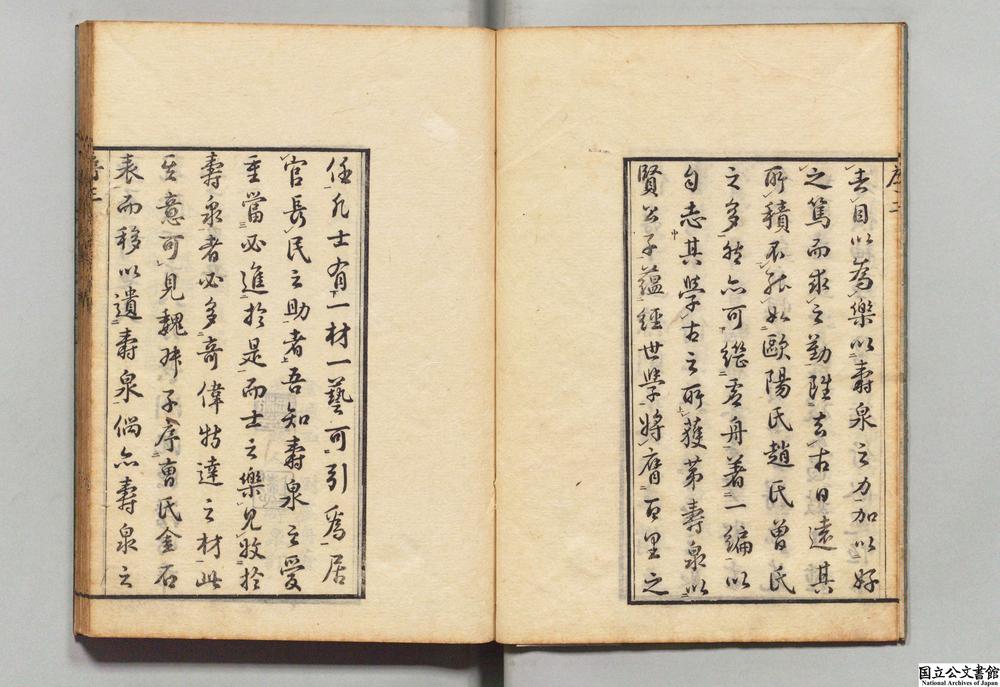 去目以為樂以壽泉之力加以好
之篤而求之勤雖去古日遠其
所積不能如歐陽氏趙氏曾氏
之多然亦可繼虛舟著一編以
自志其學古之所獲第壽泉以
賢公子蘊經世學將膺百里之
任凡士有一材一藝可引爲居
官長民之助者吾知壽泉之愛
重當必進於是而士之樂見收於
壽泉者必多奇偉特達之材此
其意可見魏叔子序曹氏金石
表而移以遺壽泉倘亦壽泉之
国立公文書館
National Archives of Japan